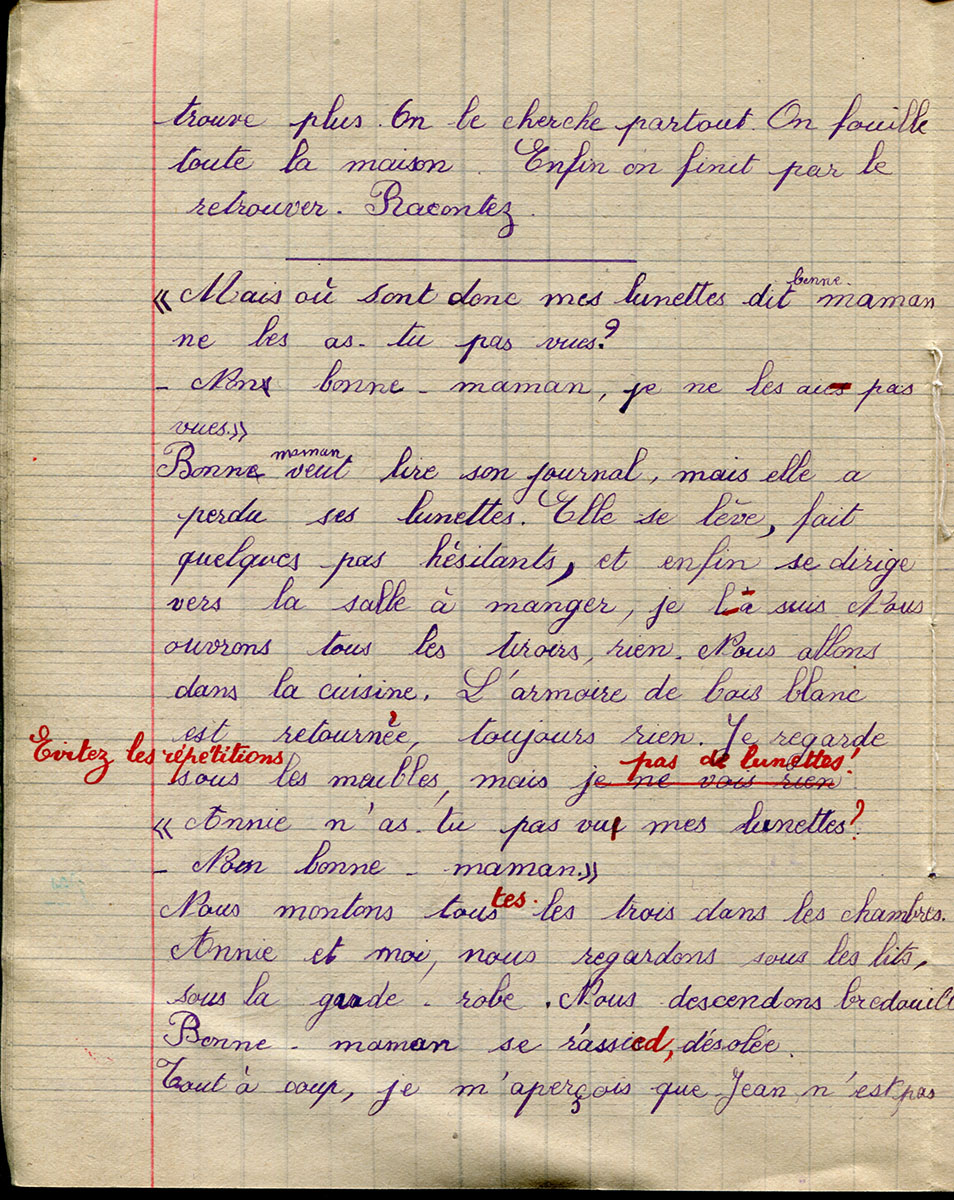 trouve plus. On le cherche partout. On fouille
toute la maison. Enfin on finit par le
retrouver. Racontez.
bonne-
« Mais où sont donc mes lunettes dit maman
ne les as-tu pas vues?
- Non bonne-maman, je ne les ai pas
vues.»
maman
Bonne veut lire son journal, mais elle a
perdu ses lunettes. Elle se lève, fait
quelques pas hésitants, et enfin se dirige
vers la salle à manger, je la suis Nous
ouvrons tous les tiroirs, rien. Nous allons
dans la cuisine. L'armoire de bois blanc
est retournée, toujours rien. Je regarde
Evitez les répétitions
pas de lunettes!
sous les meubles, mais je ne vois rien
« Annie n'as-tu pas vu mes lunettes?
- Non bonne-maman.»
tes.
Nous montons tous les trois dans les chambres.
Annie et moi, nous regardons sous les lits,
sous la garde-robe. Nous descendons bredouill
Bonne-maman se rassied, désolée.
Tout à coup, je m'aperçois que Jean n'est pas